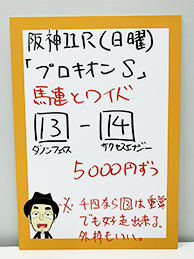 阪神11R(日曜)
「プロキオンS」
馬連とワイド
13 - 14
ダノンフェイス サクセスエナジー
5000円ずつ
※千四なら13は重賞
でも好走出来る。
外枠もいい。